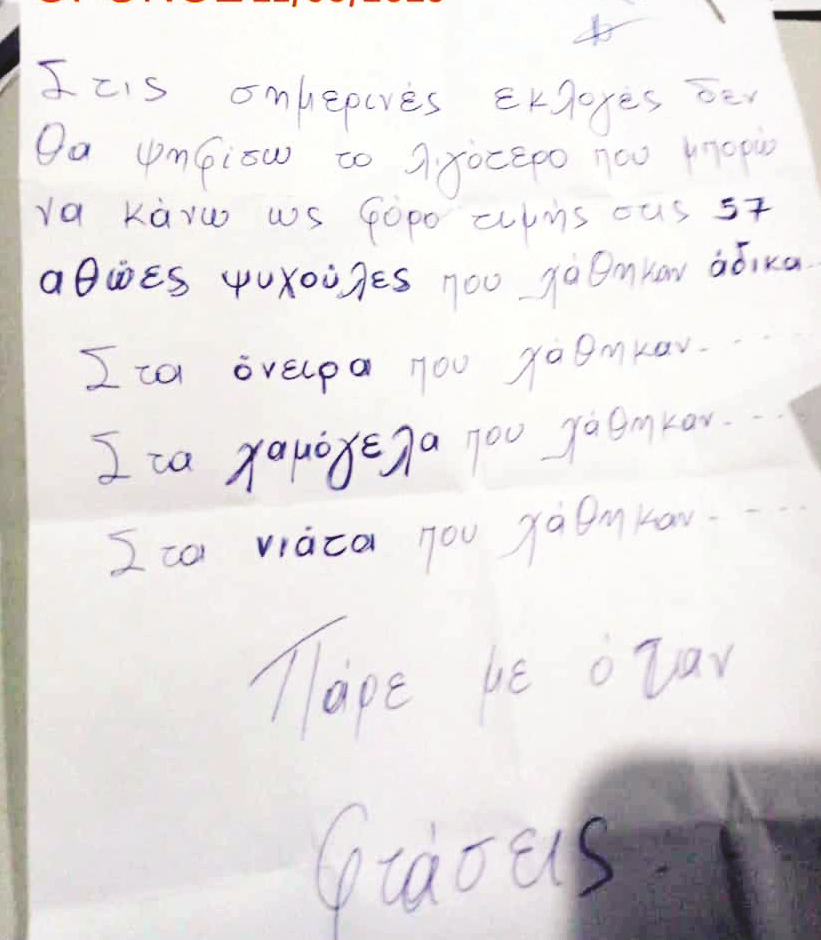 Στις σημερινές εκλογές δεν
θα ψηφίσω το λιγότερο που μπορώ
να κάνω ως φόρο τιμής στις 57
αθώες ψυχούλες που χάθηκαν άδικα..
Στα όνειρα που χάθηκαν.....
Στα χαμόγελα που χάθηκαν....
Στα νιάτα που χάθηκαν.....
Πάρε με όταν
φτάσεις.